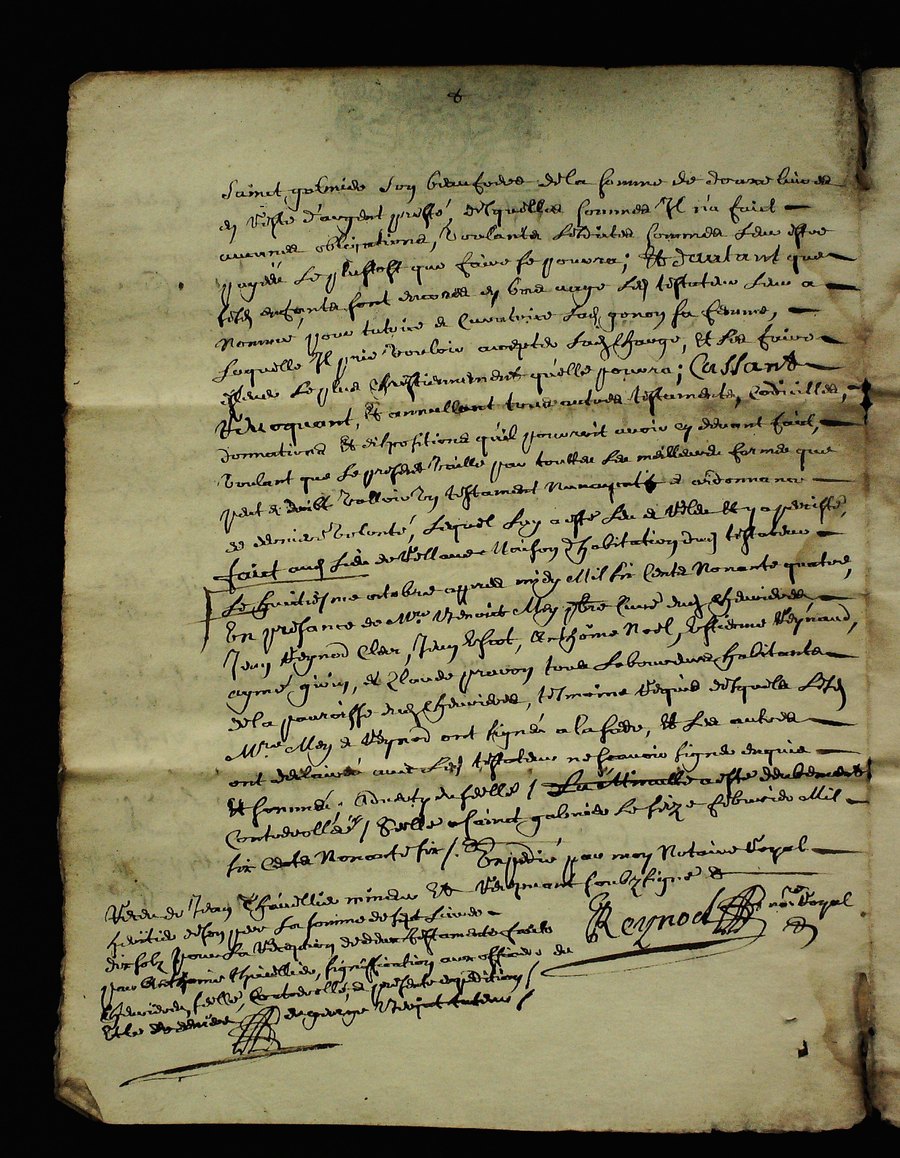 Sainct galmier son beaufrere de la somme de douze livres
en reste d'argent presté, desquelles sommes Il n'a faict
aucunes obligations, voulants lesdites sommes leur estre
payées le plustost que faire se pourra; Et d'autant que
sesd enfants sont encores en bas aage led testateur leur a
nommé pour tutrice et curatrice lad gonon sa femme,
laquelle Il prie vouloir accepter lad charge, et les faire
eslever le plus chrestiennement qu'elle pourra; Cassant
Revoquant, et annullant tous autres testaments, codicilles,
donnations et dispositions qu'il pourroit avoir cy devant faict,
voulant que le present vaille par touttes les meilleures formes que
peut et doibt valloir un testament nuncupatif et ordonnance
de derniere volonté, lequel luy a esté leu et releu et y a persisté,
faict aud lieu de maison d'habitation dud testateur
le huitiesme octobre appres midy mil six cents nonante quatre,
En presance de Mre Benoist Mey pbre curé dud Chevrieres
Jean Reynod clerc, Jean Anthoine Noel, Estienne Reynaud,
aymé et Claude tous laboureurs habitants
de la parroisse dud Chevrieres, tesmoins requis desquels lesd
Mre Mey et Reynod ont signé a la cede, et les autres
ont declairé avec led testateur ne scavoir signer enquis
et sommés. adverty du seelle / La Minutte a esté deubement
Controllée / Seellé a Sainct galmier le seize febvrier Mil
six Cents Nonante six /. Expedié par moy Notaire Royal
Recevant soubzsigné
Reynod nore Royal
Receu de Jean mineur et
heritier de son pere la somme de sept livres
dix solz pour la reception de deux testaments faicts
par Anthoine signiffication aux officiers de
Chevrieres, seelle Controlle, et presente expedition /
et le de george tuteur /